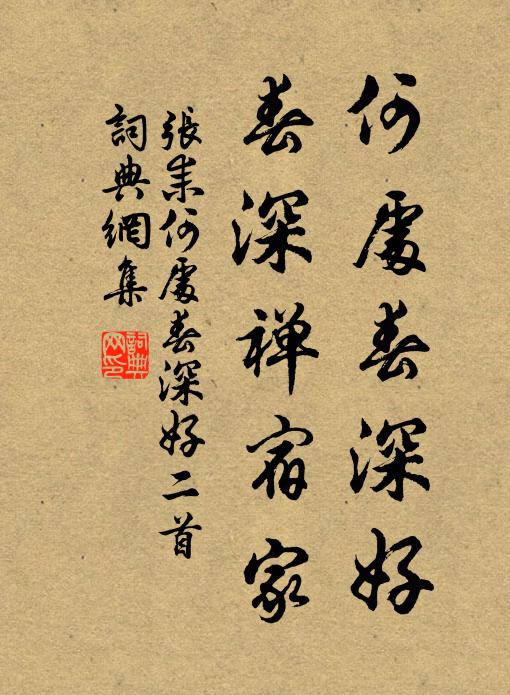 何處春深好
春深禪宿家
張耒何處春深好二首
詞典網集
詞典網印